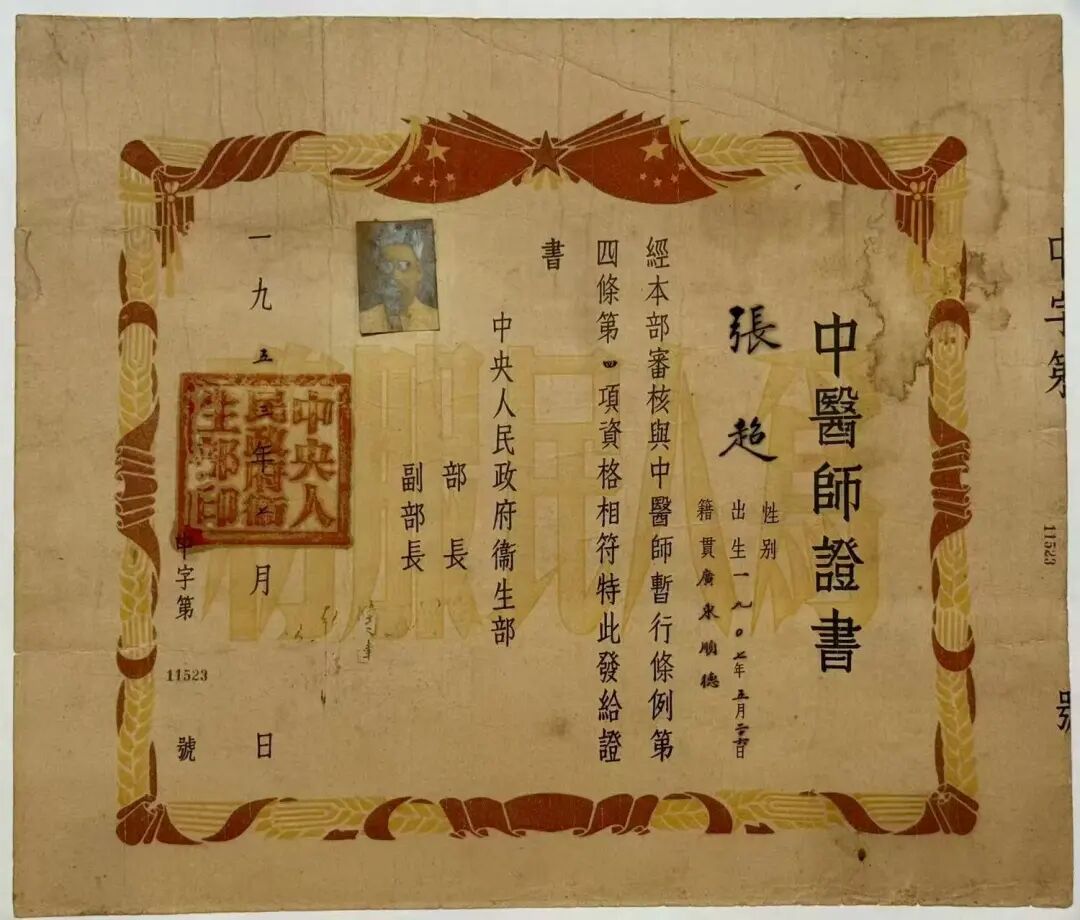 中字第
11523
號
中醫師證書
張超
性別
出生一九〇七年五月二六日
籍貫廣東順德
經本部審核與中醫師暫行條例第
四條第四項資格相符特此發給證
書
中央人民政府衞生部
部長
副部長
一九五三年 月 日
中央人
民政府衞
生部印
中字第
11523
號
為人民服務